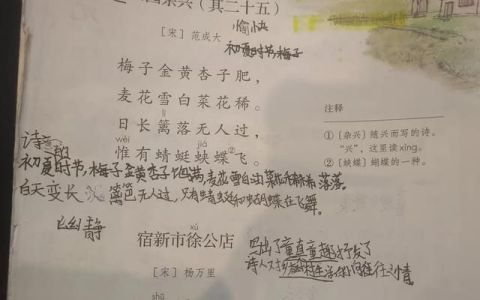 杂兴（其二十五）
愉快
［宋］范成大
初夏时节,梅子
梅子金黄杏子肥，
麦花雪白菜花稀。
lí
日长篱落无人过，
wéi jiá
惟有蜻蜓蛱蝶飞。②
注释
①［杂兴］随兴而写的诗。
“兴”，这里读xìng。
②［蛱蝶］蝴蝶的一种。
初夏时节,梅子金黄杏子饱满,麦花雪白油菜花稀稀落落。
白天变长 篱笆无人过,只有蜻蜓和蝴蝶在飞舞。
静
xú
宿新市徐公店
写出了童真童趣,抒发了
诗人对
往之情
［宋］杨万里
shū